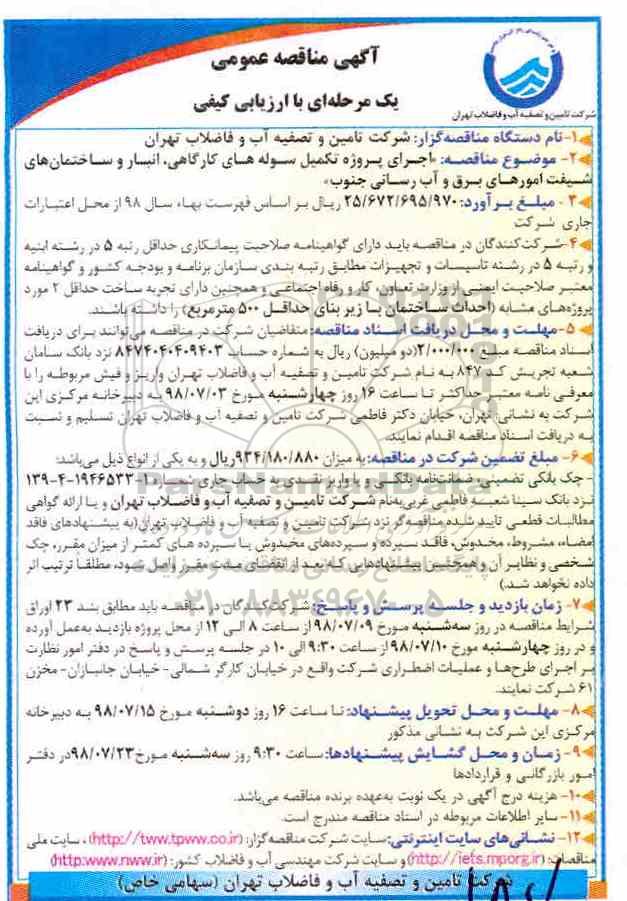 آگهی مناقصه عمومی
یک مرحله‌ای با ارزیابی کیفی
شرکت تامین و تصفیه آب و فاضلاب تهران
۱- نام دستگاه مناقصه‌گزار: شرکت تامین و تصفیه آب و فاضلاب تهران
۲- موضوع مناقصه: «اجرای پروژه تکمیل سوله های کارگاهی، انبار و ساختمان‌های
شیفت امورهای برق و آب رسانی جنوب»
۳- مبلغ برآورد: ۲۵/۶۷۲/۶۹۵/۹۷۰ ریال بر اساس فهرست بهاء سال ۹۸ از محل اعتبارات
جاری شرکت
۴- شرکت‌کنندگان در مناقصه باید دارای گواهینامه صلاحیت پیمانکاری حداقل رتبه ۵ در رشته ابنیه
و رتبه ۵ در رشته تاسیسات و تجهیزات مطابق رتبه بندی سازمان برنامه و بودجه کشور و گواهینامه
معتبر صلاحیت ایمنی از وزارت تعاون، کار و رفاه اجتماعی و همچنین دارای تجربه ساخت حداقل ۲ مورد
پروژه‌های مشابه (احداث ساختمان با زیر بنای حداقل ۵۰۰ مترمربع) را داشته باشند.
۵- مهلت و محل دریافت اسناد مناقصه: متقاضیان شرکت در مناقصه می‌توانند برای دریافت
اسناد مناقصه مبلغ ۲/۰۰۰/۰۰۰(دو میلیون) ریال به شماره حساب ۸۴۷۴۰۴۰۴۰۹۴۰۳ نزد بانک سامان
شعبه تجریش کد ۸۴۷ به نام شرکت تامین و تصفیه آب و فاضلاب تهران واریز و فیش مربوطه را با
معرفی نامه معتبر حداکثر تا ساعت ۱۶ روز چهارشنبه مورخ ۹۸/۰۷/۰۳ به دبیرخانه مرکزی این
شرکت به نشانی: تهران، خیابان دکتر فاطمی شرکت تامین و تصفیه آب و فاضلاب تهران تسلیم و نسبت
به دریافت اسناد مناقصه اقدام نمایند.
۶- مبلغ تضمین شرکت در مناقصه: به میزان ۹۳۴/۱۸۰/۸۸۰ ریال و به یکی از انواع ذیل می‌باشد:
- چک بانکی تضمینی، ضمانت‌نامه بانکی و یا واریز نقدی به حساب جاری ۱۳۹-۴-۱۹۴۶۵۳۳
نزد بانک سینا شعبه فاطمی غربی به‌نام شرکت تامین و تصفیه آب و فاضلاب تهران و یا ارائه گواهی
مطالبات قطعی تایید شده مناقصه‌گر نزد شرکت تامین و تصفیه آب و فاضلاب تهران (به پیشنهادهای فاقد
امضاء، مشروط، مخدوش، فاقد سپرده و سپرده‌های مخدوش یا سپرده های کمتر از میزان مقرر، چک
شخصی و نظایر آن و همچنین پیشنهادهایی که بعد از انقضای مدت مقرر واصل شود، مطلقا ترتیب اثر
داده نخواهد شد.)
۷- زمان بازدید و جلسه پرسش و پاسخ: شرکت‌کنندگان در مناقصه باید مطابق بند ۲۳ اوراق
شرایط مناقصه در روز سه‌شنبه مورخ ۹۸/۰۷/۰۹ از ساعت ۸ الی ۱۲ از محل پروژه بازدید به‌عمل آورده
و در روز چهارشنبه مورخ ۹۸/۰۷/۱۰ از ساعت ۹:۳۰ الی ۱۰ در جلسه پرسش و پاسخ در دفتر امور نظارت
بر اجرای طرح‌ها و عملیات اضطراری شرکت واقع در خیابان کارگر شمالی- خیابان جانبازان- مخزن
۶۱ شرکت نمایند.
۸- مهلت و محل تحویل پیشنهاد: تا ساعت ۱۶ روز دوشنبه مورخ ۹۸/۰۷/۱۵ به دبیرخانه
مرکزی این شرکت به نشانی مذکور
۹- زمان و محل گشایش پیشنهادها: ساعت ۹:۳۰ روز سه‌شنبه مورخ ۹۸/۰۷/۲۳ در دفتر
امور بازرگانی و قراردادها
۱۰- هزینه درج آگهی در یک نوبت به‌عهده برنده مناقصه می‌باشد.
۱۱- سایر اطلاعات مربوطه در اسناد مناقصه مندرج است.
۱۲- نشانی‌های سایت اینترنتی: سایت شرکت مناقصه‌گزار: (http://tww.tpww.co.ir)، سایت ملی
مناقصات: (http://iets.mporg.ir) و سایت شرکت مهندسی آب و فاضلاب کشور: (http:www.nww.ir)
شرکت تامین و تصفیه آب و فاضلاب تهران (سهامی خاص)
ParsNamadData
۰۲۱-۸۸۳۴۹۶۷۰-۵